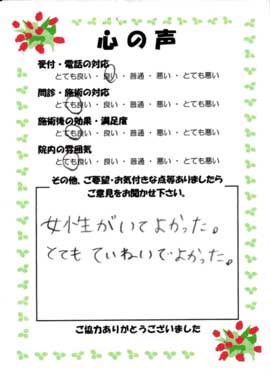 心の声
受付・電話の対応
とても良い ・ 良い ・ 普通 ・ 悪い ・ とても悪い
問診・施術の対応
とても良い ・ 良い ・ 普通 ・ 悪い ・ とても悪い
施術後の効果・満足度
とても良い ・ 良い ・ 普通 ・ 悪い ・ とても悪い
院内の雰囲気
とても良い ・ 良い ・ 普通 ・ 悪い ・ とても悪い
その他、ご要望・お気付きな点等ありましたら
ご意見をお聞かせ下さい。
女性がいてよかった。
とても ていねいでよかった。
ご協力ありがとうございました